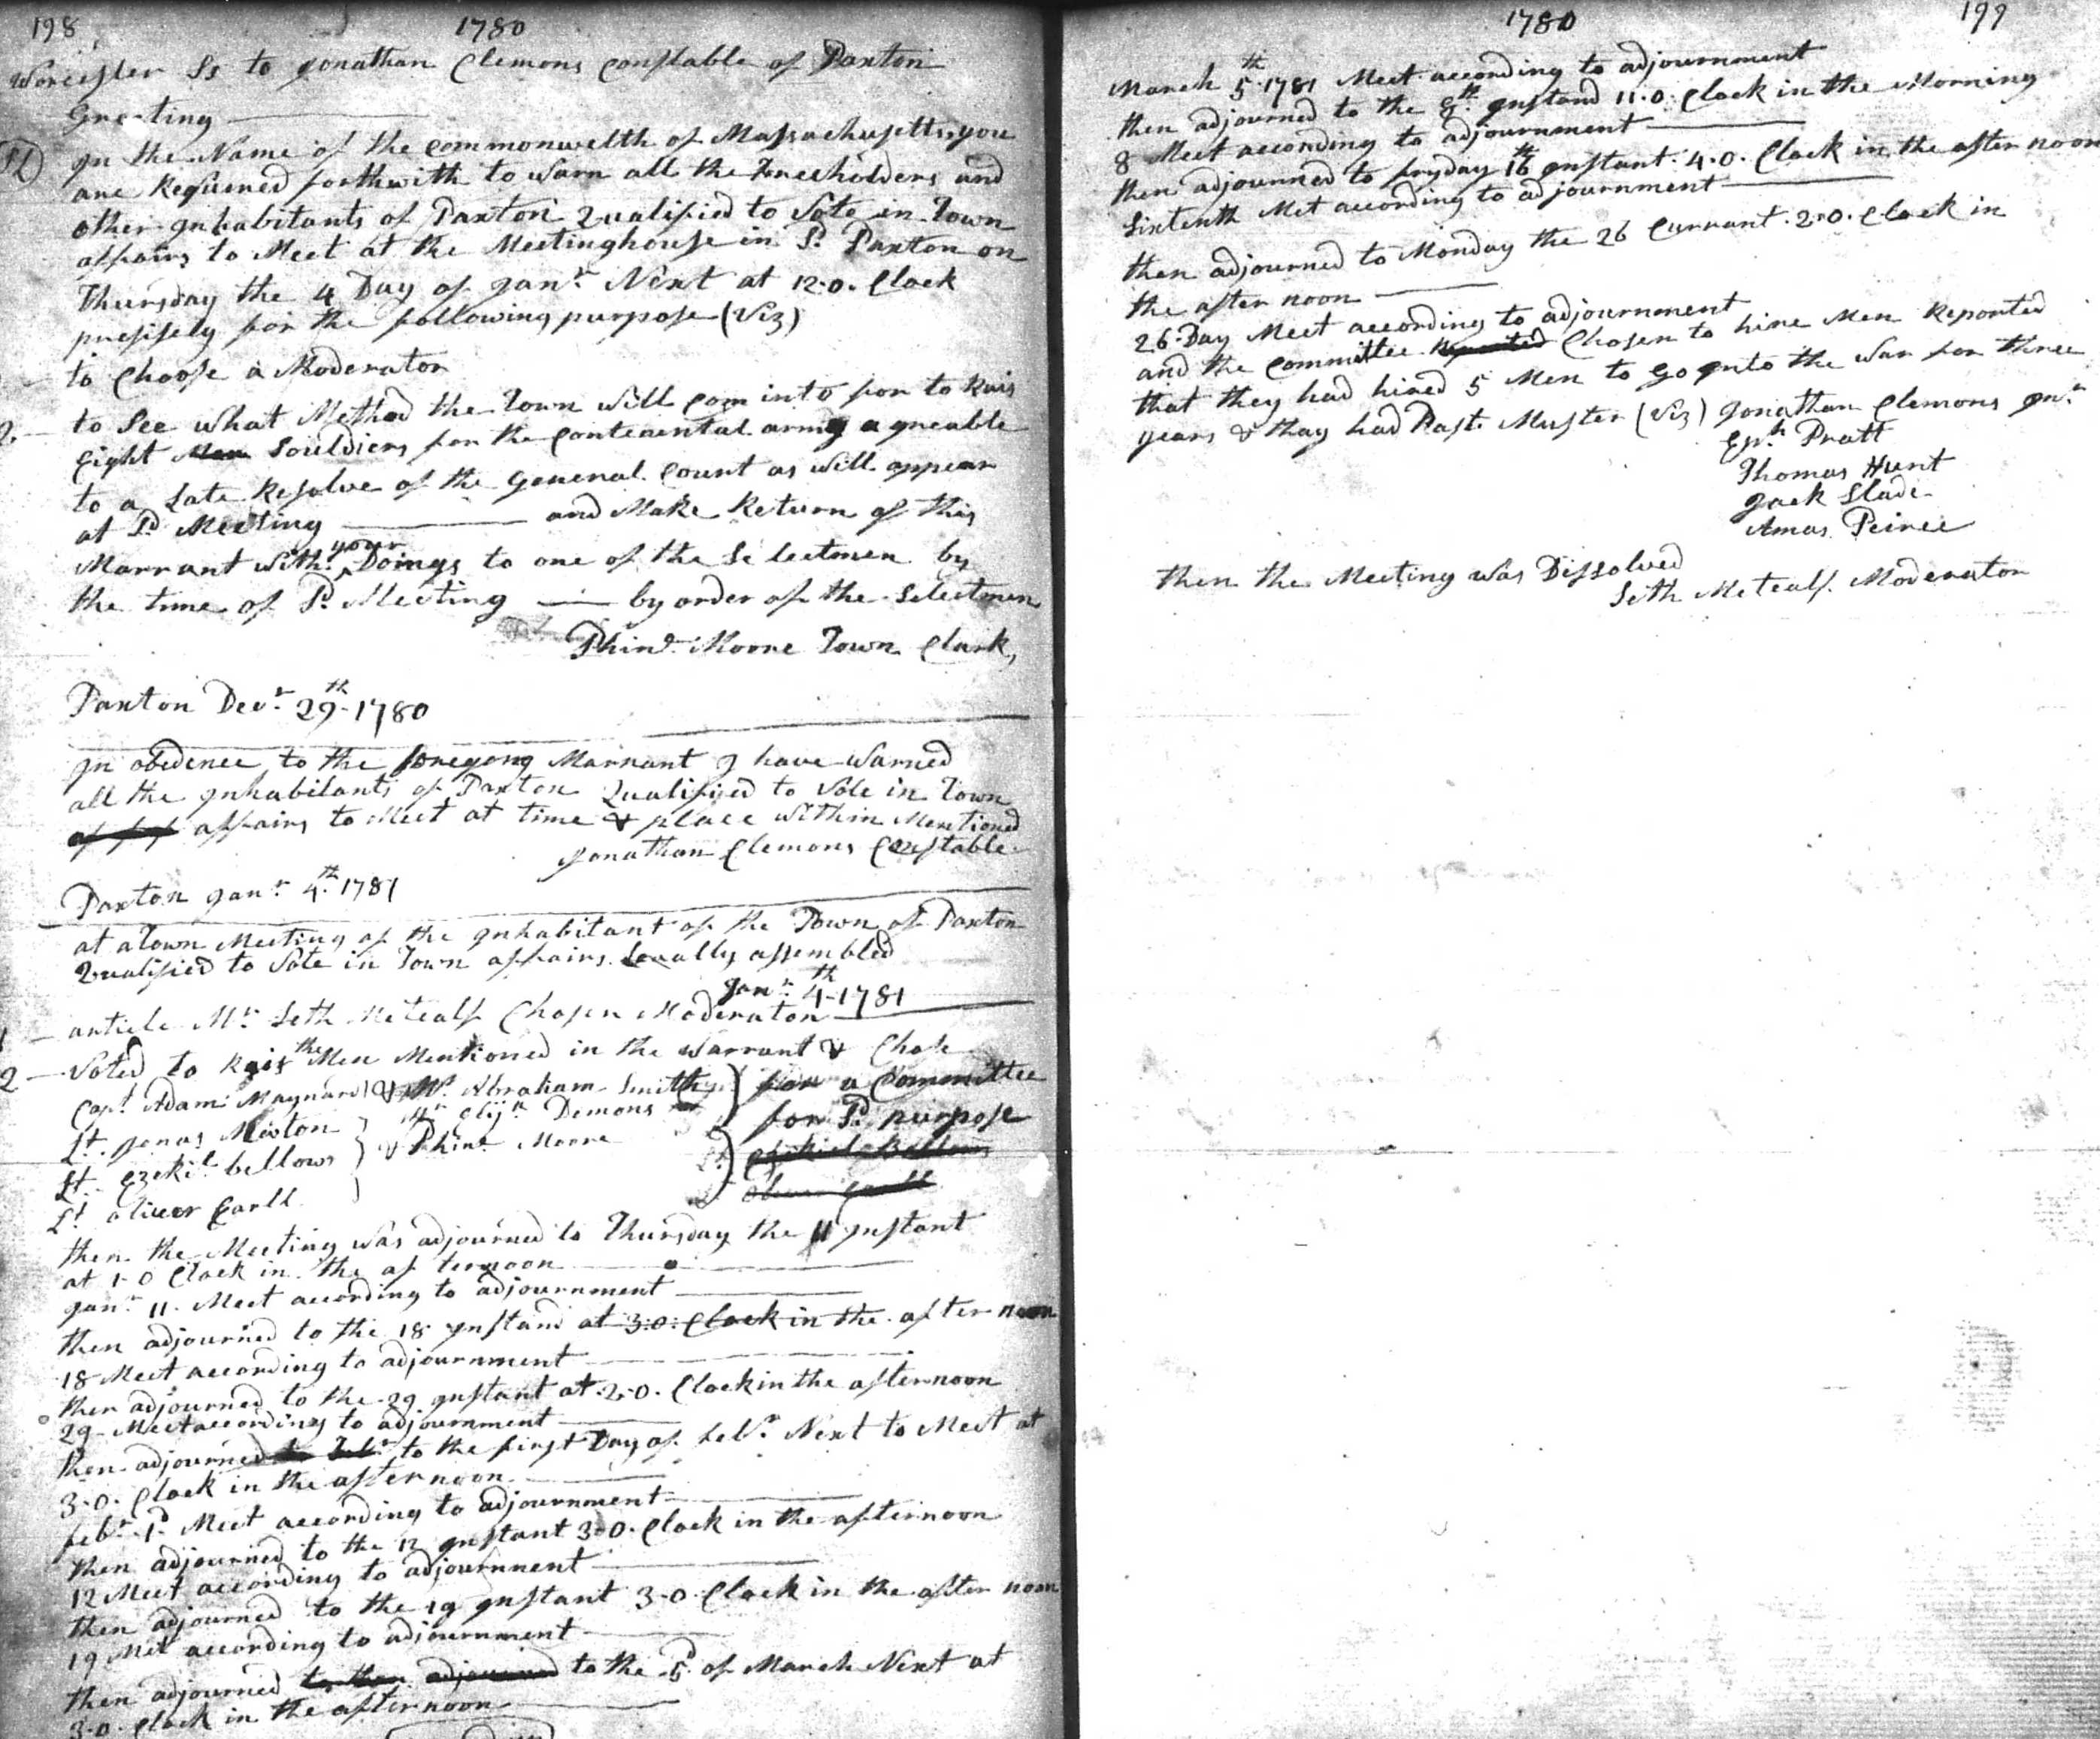 198
1780
Worcister Ss to Jonathan Clemons Constable of Paxton
Greeting
In the Name of the commonwelth of Massachusetts, you
are Requiered forthwith to warn all the Freeholders and
other Inhabitants of Paxton Qualified to Vote in Town
affairs to Meet at the Meetinghouse in Sd. Paxton on
Thursday the 4 Day of Janr. Next at 12.o.Clock
presisely for the following purpose (Viz)
to Choose a Moderator
2 to See what Method the Town will com into for to Rais
Eight Men Souldiers for the Contenental army agreable
to a Late Resolve of the general Court as will appear
at Sd. Meeting and Make Return of this
Warrant with your Doings to one of the Selectmen by
the time of Sd. Meeting by order of the Selectmen
Phins. Moore Town Clark,
Paxton Decr. 29th. 1780
In obedence to the foregong Warrant I have warned
all the Inhabitants of Paxton Qualified to Vote in Town
affairs to Meet at time & place within Mentioned
Jonathan Clemons Constable
Paxton Janr. 4th. 1781
at a Town Meeting of the Inhabitant of the Town of Paxton
Qualified to Vote in Town affairs Legally assembled
Janr. 4th-1781
1 article Mr. Seth Metcalf Chosen Moderator
2 Voted to Rais the Men Mentioned in the warrant & Chose
Capt. Adam Maynard & Mr. Abraham Smith for a Committee
Lt. Jonas Demons for Sd. purpose
Lt. Ezekil. bellows & Phins. Moore Ezekiel Bellows
Lt. oliver Earll
then the Meeting was adjourned to Thursday the 11 Instant
at 1-o Clock in the af ternoon
Janr. 11. Meet according to adjournment
then adjourned to the 18 Instand at 3.o.Clock in the after noon
18 Meet according to adjournment
then adjourned to the 29 Instant at 2.o.Clock in the afternoon
29 Meet according to adjournment
then adjourned to the first Day of febr. Next to Meet at
3.o.Clock in the afternoon
febr. 1d. Meet according to adjournment
then adjourned to the 12 Instant 3.o.Clock in the afternoon
12 Meet according to adjournment
then adjourned to the 19 Instant 3.o.Clock in the after noon
19 Met according to adjournment
then adjourned to then adjourned to the 5d. of March Next at
3.o.Clock in the afternoon
1780
199
March 5th. 1781 Meet according to adjournment
then adjourned to the 8th. Instand 11.o.Clock in the Morning
8 Meet according to adjournment
then adjourned to fryday 16th Instant. 4.o.Clock in the after noon
Sixtenth Met according to adjournment
then adjourned to Monday the 26 Currant. 2.o.Clock in
the after noon
26 Day Meet according to adjournment
and the Committee Reported Chosen to hire Men Reported
that they had hired 5 Men to go Into the War for three
years & thay had Past Muster (Viz) Jonathan Clemons Jnr.
Eph. Pratt
Thomas Hunt
Jack Slade
Amos Peirce
then the Meeting was Dissolved
Seth Metcalf. Moderator